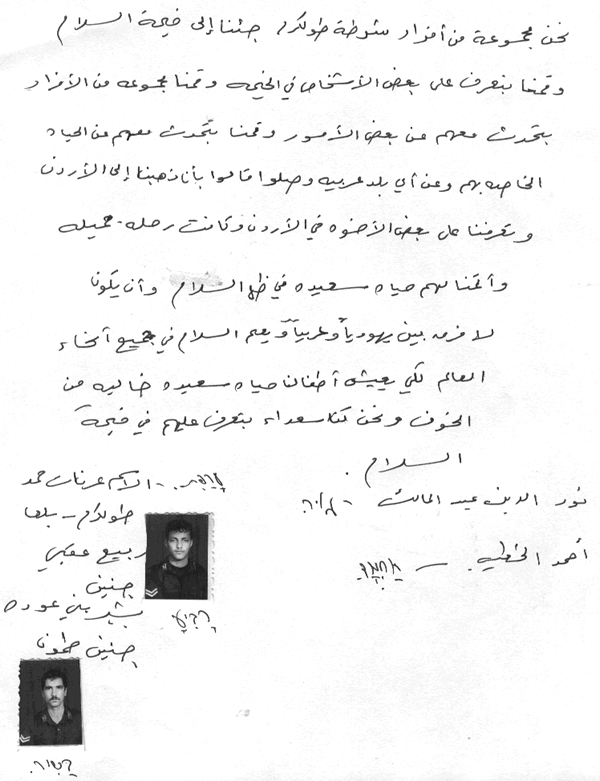 نحن مجموعة من أفراد شرطة طولكرم جئنا إلى خيمة السلام
وقمنا بتعرف على بعض الأشخاص في الخيمه وقمنا مجموعه من الأفراد
بتحدث معهم عن بعض الأمور وقمنا بتحدث معهم عن الحياه
الخاصه بهم وعن أي بلد عربيه وصلوا قالوا بأنا ذهبنا إلى الأردن
وتعرفنا على بعض الأخوه في الأردن وكانت رحله جميله
وأتمنا لهم حياه سعيده في ظل السلام وأن يكون
لا فرق بين يهودياً وعربياً ويعم السلام في جميع أنحاء
العالم لكي يعيش أطفالنا حياه سعيده خاليه من
الخوف ونحن كنا سعداء بتعرف عليهم في خيمة
السلام.
نور الدين عبد المالك
أحمد الخطيب -
الاسم عرفات حمد
طولكرم - بلعا
ربيع عقبي
جنين
بشير بني عوده
جنين طمون